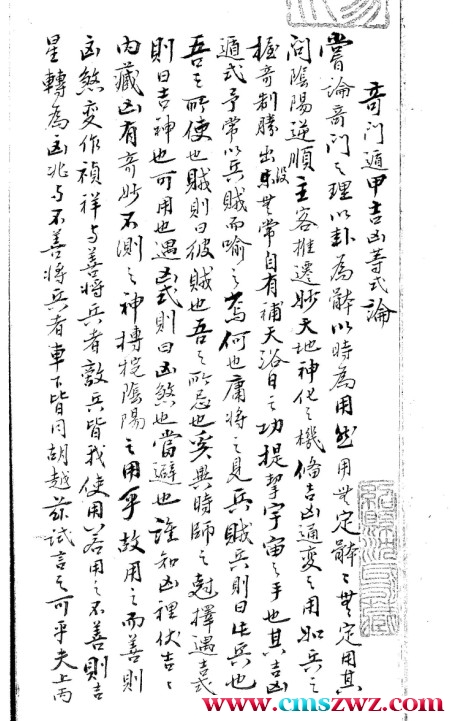 奇门遁甲吉凶等式論
嘗論奇门之理以卦為体以時為用然用無定体〻無定用其
间陰陽逆順主客推遷妙天地神化之機俻吉凶通变之用如兵之
握奇制勝出没無常自有補天浴日之功提挈宇宙之手也其吉凶
遁式予常以兵賊而喻之焉何也庸將之見兵賊兵則曰此兵也
吾之所使也賊則曰彼賊也吾之所忌也奚異時師之尅擇遇吉式
則曰吉神也可用也遇凶式則曰凶煞也當避也誰知凶裡伏吉〻
内藏凶有奇妙不測之神摶捖陰陽之用乎故用之而善則
凶煞变作禎祥与善將兵者敵兵皆我使用若用之不善則吉
星轉為凶兆与不善将兵者車下皆同胡越茲試言之可乎夫上丙
www.cmszwz.com